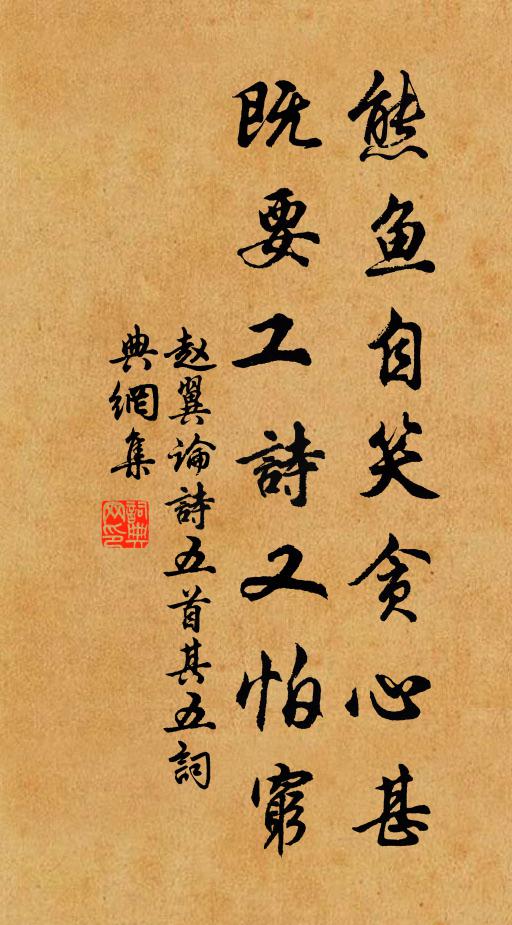 熊鱼自笑贪心甚
既要工詩又怕窮
赵翼论詩五首其五詞
典網集
詞典网印